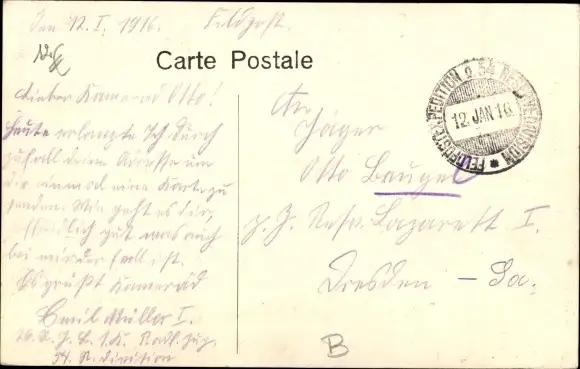 Den 12. I. 1916. Feldpost.
Carte Postale
Lieber Kamerad Otto!
Heute erlangte ich durch
zufall deine Adresse um
dir einmal eine Karte zu
senden. Wie geht es dir,
hoffentlich gut was auch
bei mir der fall ist.
Es grüßt Kamerad
Emil Müller I.
26. R. J. B. 1. K. Radf. Zug.
54. R. Division
An
Jäger
Otto Bauge
z. Z. Resv. Lazarett I.
Dresden – Sa.
FELDPOSTEXPEDITION D. 54 RESERVEDIVISION
12. JAN 16.
B